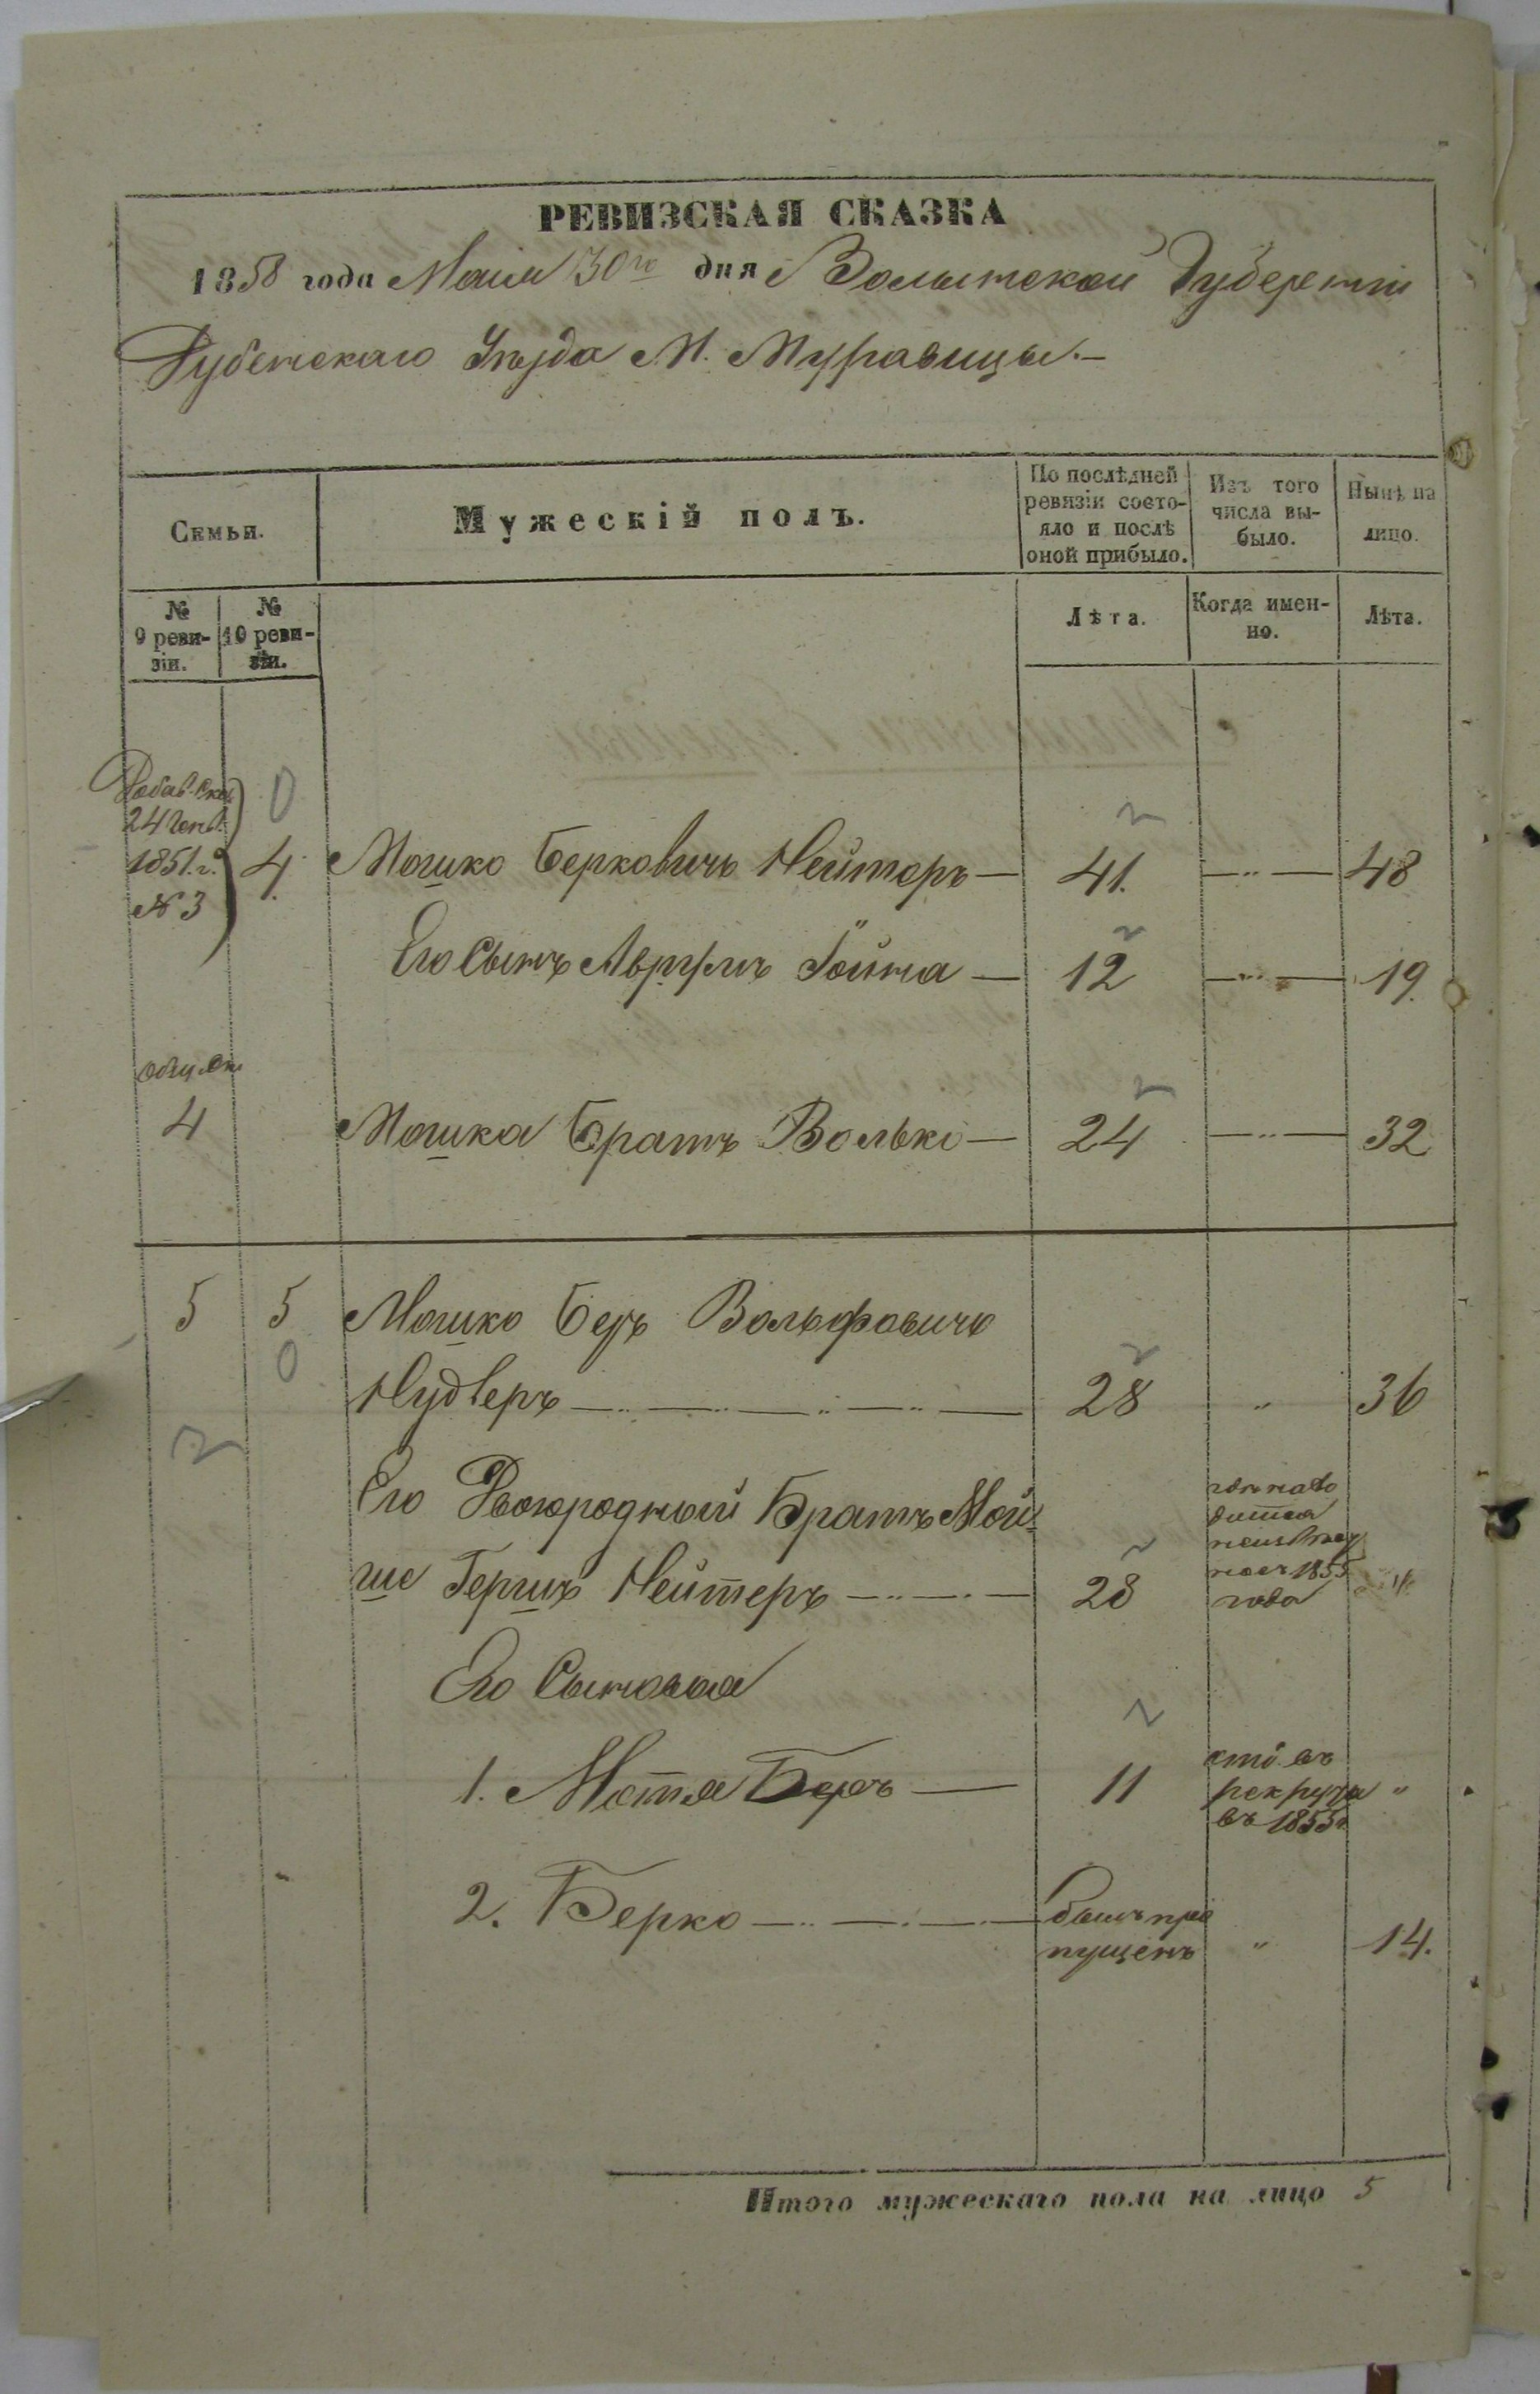 РЕВИЗСКАЯ СКАЗКА
1858 года Маия 30го дня Волынской Губерніи
Дубенскаго Уѣзда М. Муравицы.—
Семьи.
Мужескій полъ.
По послѣдней ревизіи состо-
яло и послѣ
оной прибыло.
Изъ того
числа вы-
было.
Нынѣ на
лицо.
№
9 реви-
зіи.
№
10 реви-
зіи.
Лѣта.
Когда имен-
но.
Лѣта.
Добав. Ска.
24
1851 г.
№ 3
4. Мошко Берковичъ Нейтеръ — 41. —„— 48
Его Сынъ Аврумъ Іойна — 12 —„— 19.
4 Мошка Братъ Волько — 24 —„— 32
5 5 Мошко Беръ Вольфовичъ
Нудлеръ — 28 „ 36
Его Двоюродный Братъ Мой-
ше Гершъ Нейтеръ — 28
1855
года
Его Сыновья
1. Мотя Беръ — 11
въ
рекруты „
въ 1855 г.
2. Берко — былъ про
пущенъ „ 14.
Итого мужескаго пола на лицо 5